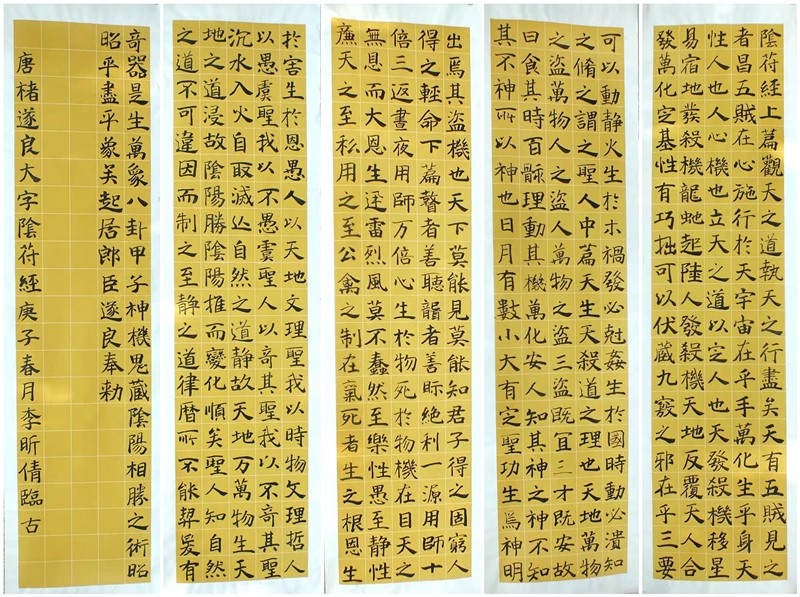 陰符經上篇觀天之道執天之行盡矣天有五賊見之
者昌五賊在心施行於天宇宙在乎手萬化生乎身天
性人也人心機也立天之道以定人也天發殺機移星
易宿地發殺機龍虵起陸人發殺機天地反覆天人合
發萬化定基性有巧拙可以伏藏九竅之邪在乎三要
可以動靜火生於木禍發必尅姦生於國時動必潰知
之脩之謂之聖人中篇天生天殺道之理也天地萬物
之盜萬物人之盜人萬物之盜三盜既宜三才既安故
曰食其時百骸理動其機萬化安人知其神之神不知
其不神所以神也日月有數小大有定聖功生焉神明
出焉其盜機也天下莫能見莫能知君子得之固窮人
得之輕命下篇瞽者善聽聾者善眎絕利一源用師十
倍三返晝夜用師万倍心生於物死於物機在目天之
無恩而大恩生迅雷烈風莫不蠢然至樂性愚至靜性
廉天之至私用之至公禽之制在氣死者生之根恩生
於害生於恩愚人以天地文理聖我以時物文理哲人
以愚虞聖我以不愚虞聖人以奇其聖我以不奇其聖
沉水入火自取滅亡自然之道靜故天地万萬物生天
地之道浸故陰陽勝陰陽推而變化順矣聖人知自然
之道不可違因而制之至靜之道律曆所不能契爰有
奇器是生萬象八卦甲子神機鬼藏陰陽相勝之術昭
昭乎盡乎象矣起居郎臣遂良奉勅
唐褚遂良大字陰符經庚子春月李昕倩臨古